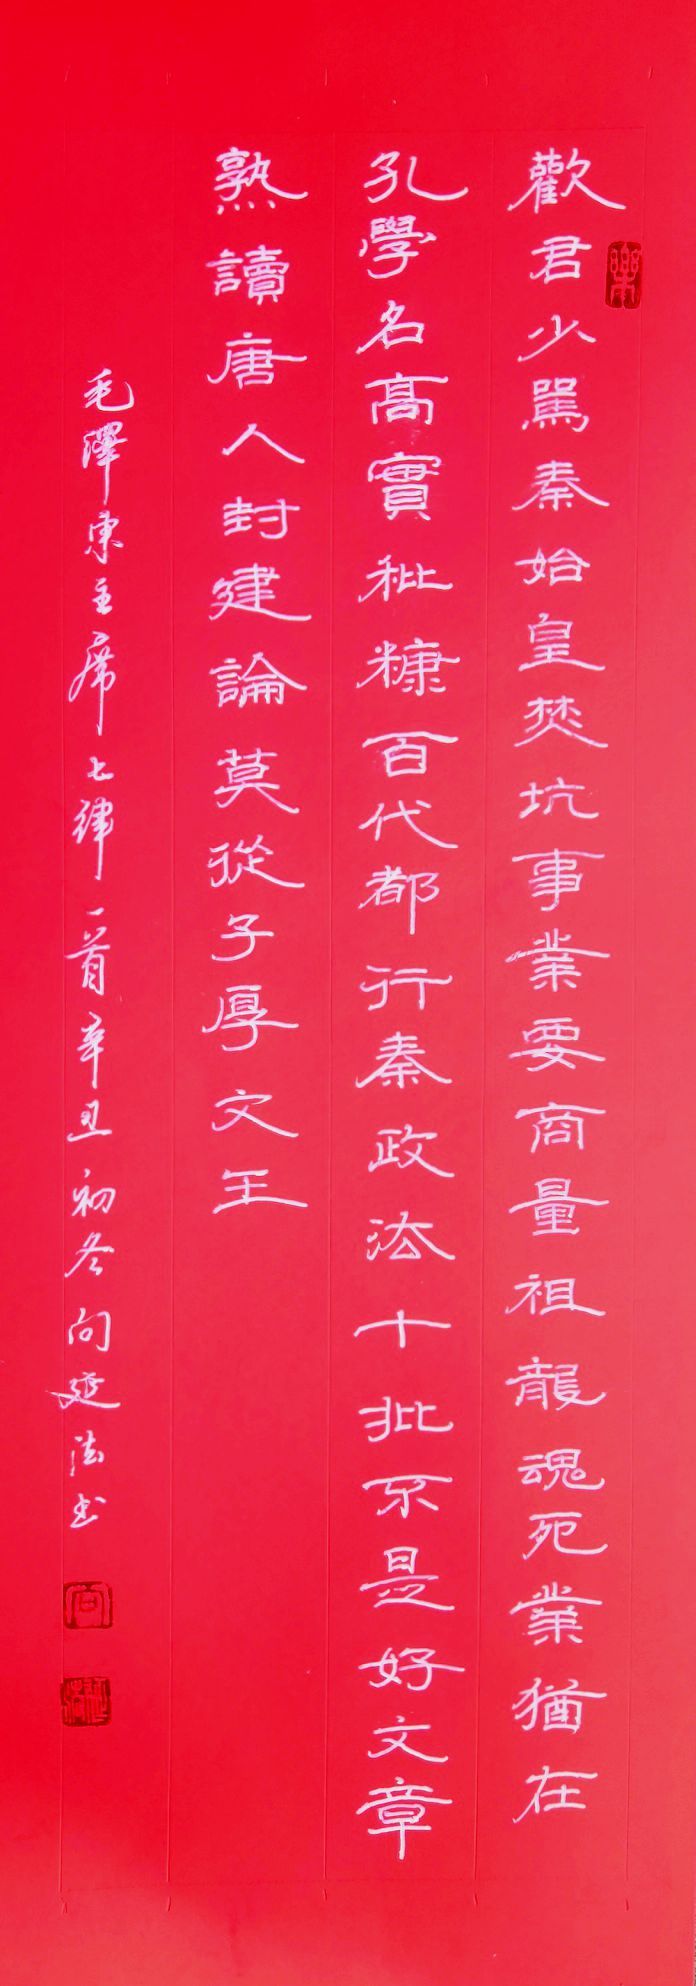 歡君少罵秦始皇焚坑事業要商量祖龍魂死業猶在
孔學名高實秕糠百代都行秦政法十批不是好文章
熟讀唐人封建論莫從子厚文王
毛澤東主席七律一首辛丑初冬向延法书